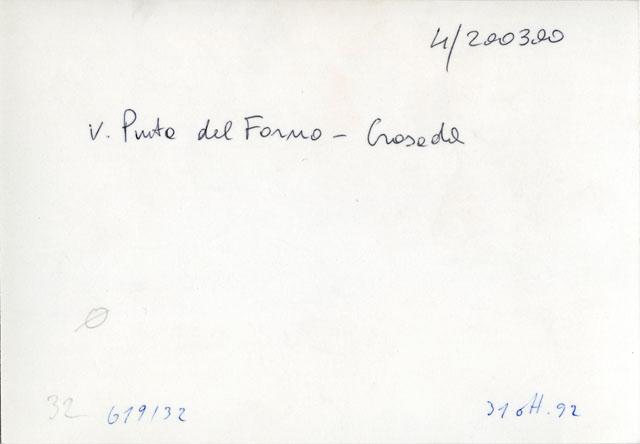 4/200300
v. Punta del Forno - Crosada
Ø
32 619/32
31 ott. 92